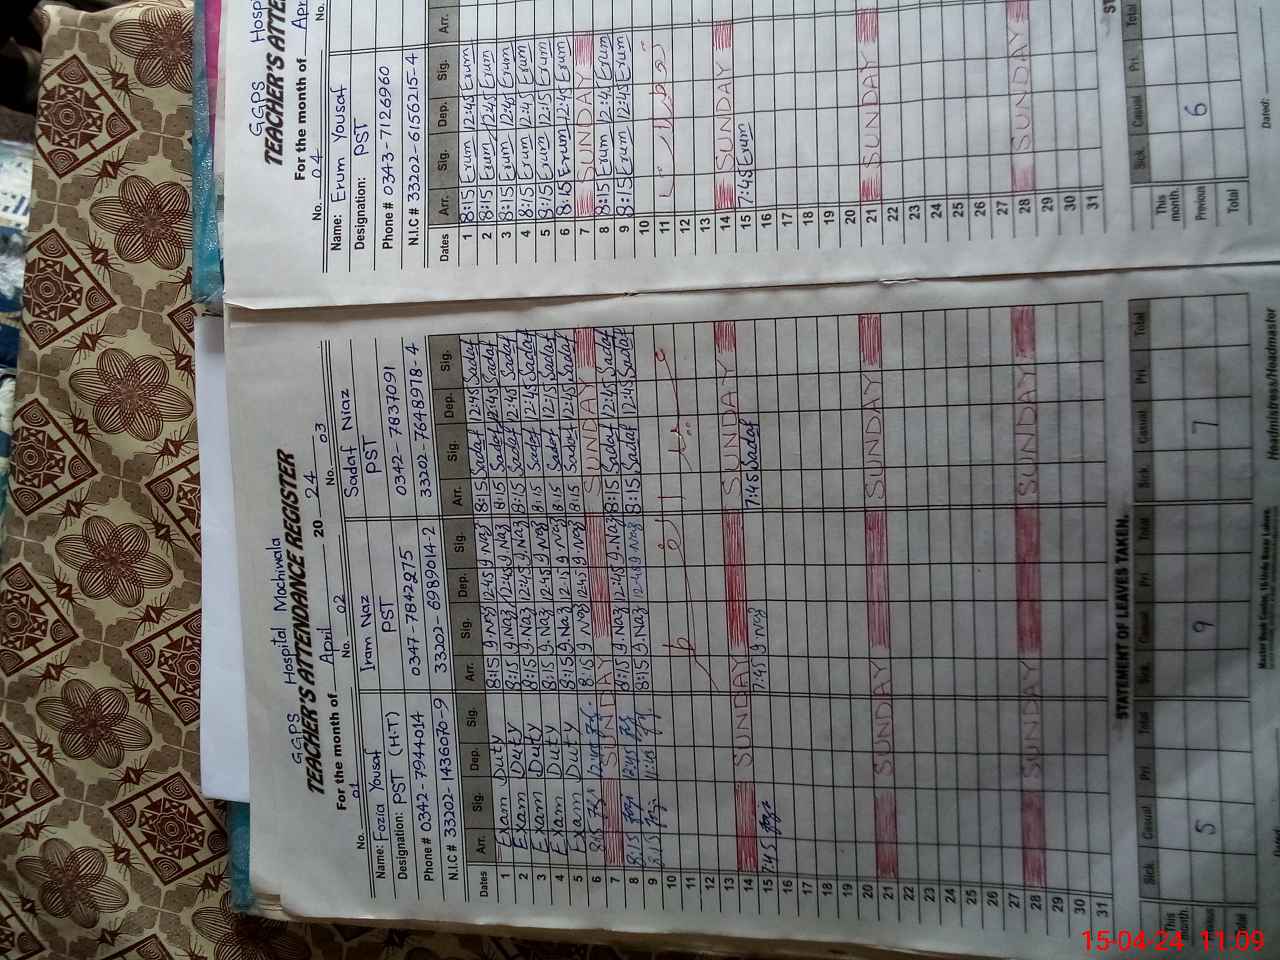 GGPS Hospital Mochiwala
TEACHER'S ATTENDANCE REGISTER
For the month of April 20 24
No. 01 No. 02 No. 03
Name: Fozia Yousaf Iram Naz Sadaf Niaz
Designation: PST (H.T) PST PST
Phone # 0342-7944014 0347-7842275 0342-7837091
N.I.C # 33202-1436070-9 33202-6989014-2 33202-7648978-4
Dates Arr. Sig. Dep. Sig. Arr. Sig. Dep. Sig. Arr. Sig. Dep. Sig.
1 Exam Duty 8:15 I.Naz 12:45 I.Naz 8:15 Sadaf 12:45 Sadaf
2 Exam Duty 8:15 I.Naz 12:45 I.Naz 8:15 Sadaf 12:45 Sadaf
3 Exam Duty 8:15 I.Naz 12:45 I.Naz 8:15 Sadaf 12:45 Sadaf
4 Exam Duty 8:15 I.Naz 12:45 I.Naz 8:15 Sadaf 12:45 Sadaf
5 Exam Duty 8:15 I.Naz 12:15 I.Naz 8:15 Sadaf 12:15 Sadaf
6 8:15 12:45 8:15 I.Naz 12:45 I.Naz 8:15 Sadaf 12:45 Sadaf
7 SUNDAY SUNDAY
8 8:15 12:45 8:15 I.Naz 12:45 I.Naz 8:15 Sadaf 12:45 Sadaf
9 8:15 8:15 I.Naz 12:45 I.Naz 8:15 Sadaf 12:45 Sadaf
10
11
12
13
14 SUNDAY SUNDAY
15 7:45 7:45 I.Naz 7:45 Sadaf
16
17
18
19
20
21 SUNDAY SUNDAY
22
23
24
25
26
27
28 SUNDAY SUNDAY
29
30
31
STATEMENT OF LEAVES TAKEN.
Sick. Casual Pri. Total Sick. Casual Pri Total Sick. Casual Pri. Total
This month.
Previous 5 9 7
Total
Headmistress/Headmaster
GGPS Hospi
TEACHER'S ATTE
For the month of Apri
No. 04 No.
Name: Erum Yousaf
Designation: PST
Phone # 0343-7126960
N.I.C # 33202-6156215-4
Dates Arr. Sig. Dep. Sig. Arr.
1 8:15 Erum 12:45 Erum
2 8:15 Erum 12:45 Erum
3 8:15 Erum 12:45 Erum
4 8:15 Erum 12:45 Erum
5 8:15 Erum 12:15 Erum
6 8:15 Erum 12:45 Erum
7 SUNDAY
8 8:15 Erum 12:45 Erum
9 8:15 Erum 12:45 Erum
10
11
12
13
14 SUNDAY
15 7:45 Erum
16
17
18
19
20
21 SUNDAY
22
23
24
25
26
27
28 SUNDAY
29
30
31
ST
Sick. Casual Pri. Total
This month.
Previous 6
Total
Dated:
15-04-24 11:09